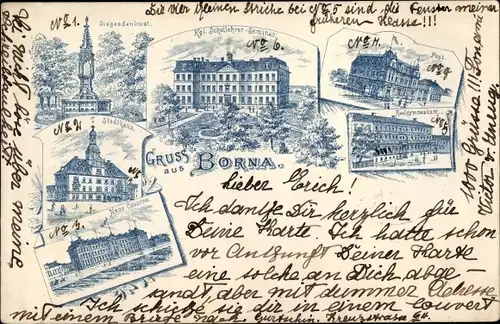 Die vier kleinen Striche bei No 5 sind die Fenster meiner
früheren Klasse!!!
No 1.
Siegesdenkmal.
Kgl. Schullehrer-Seminar.
No 6.
No 4.
Post.
Realgymnasium.
No 5
No 2
Stadthaus.
No 3.
Neue Caserne.
GRUSS
aus
BORNA.
lieber Erich!
Ich danke Dir herzlich für
Deine Karte. Ich hatte schon
vor Ankunft Deiner Karte
eine solche an Dich abge-
sandt, aber mit dummer Adresse
Ich schicke sie dir in einem Couvert
mit einem Briefe nach Kreuzstrasse 64.
1000 Grüsse!!!